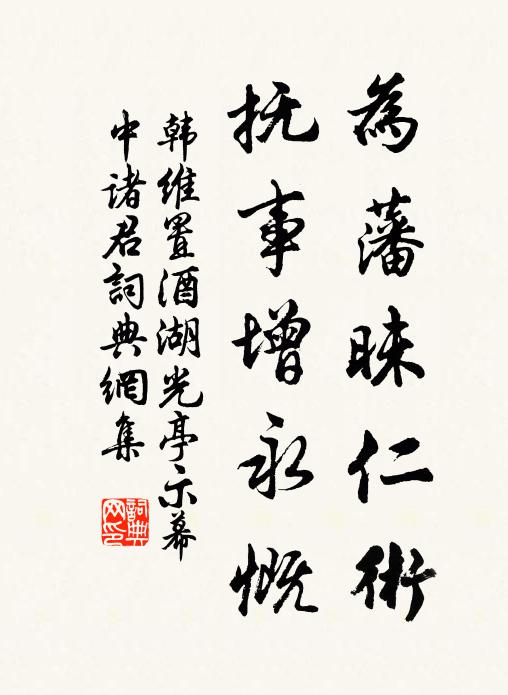 為藩昧仁術
抚事增永慨
韩維置酒湖光亭示幕
中诸君詞典網集
詞典
网印